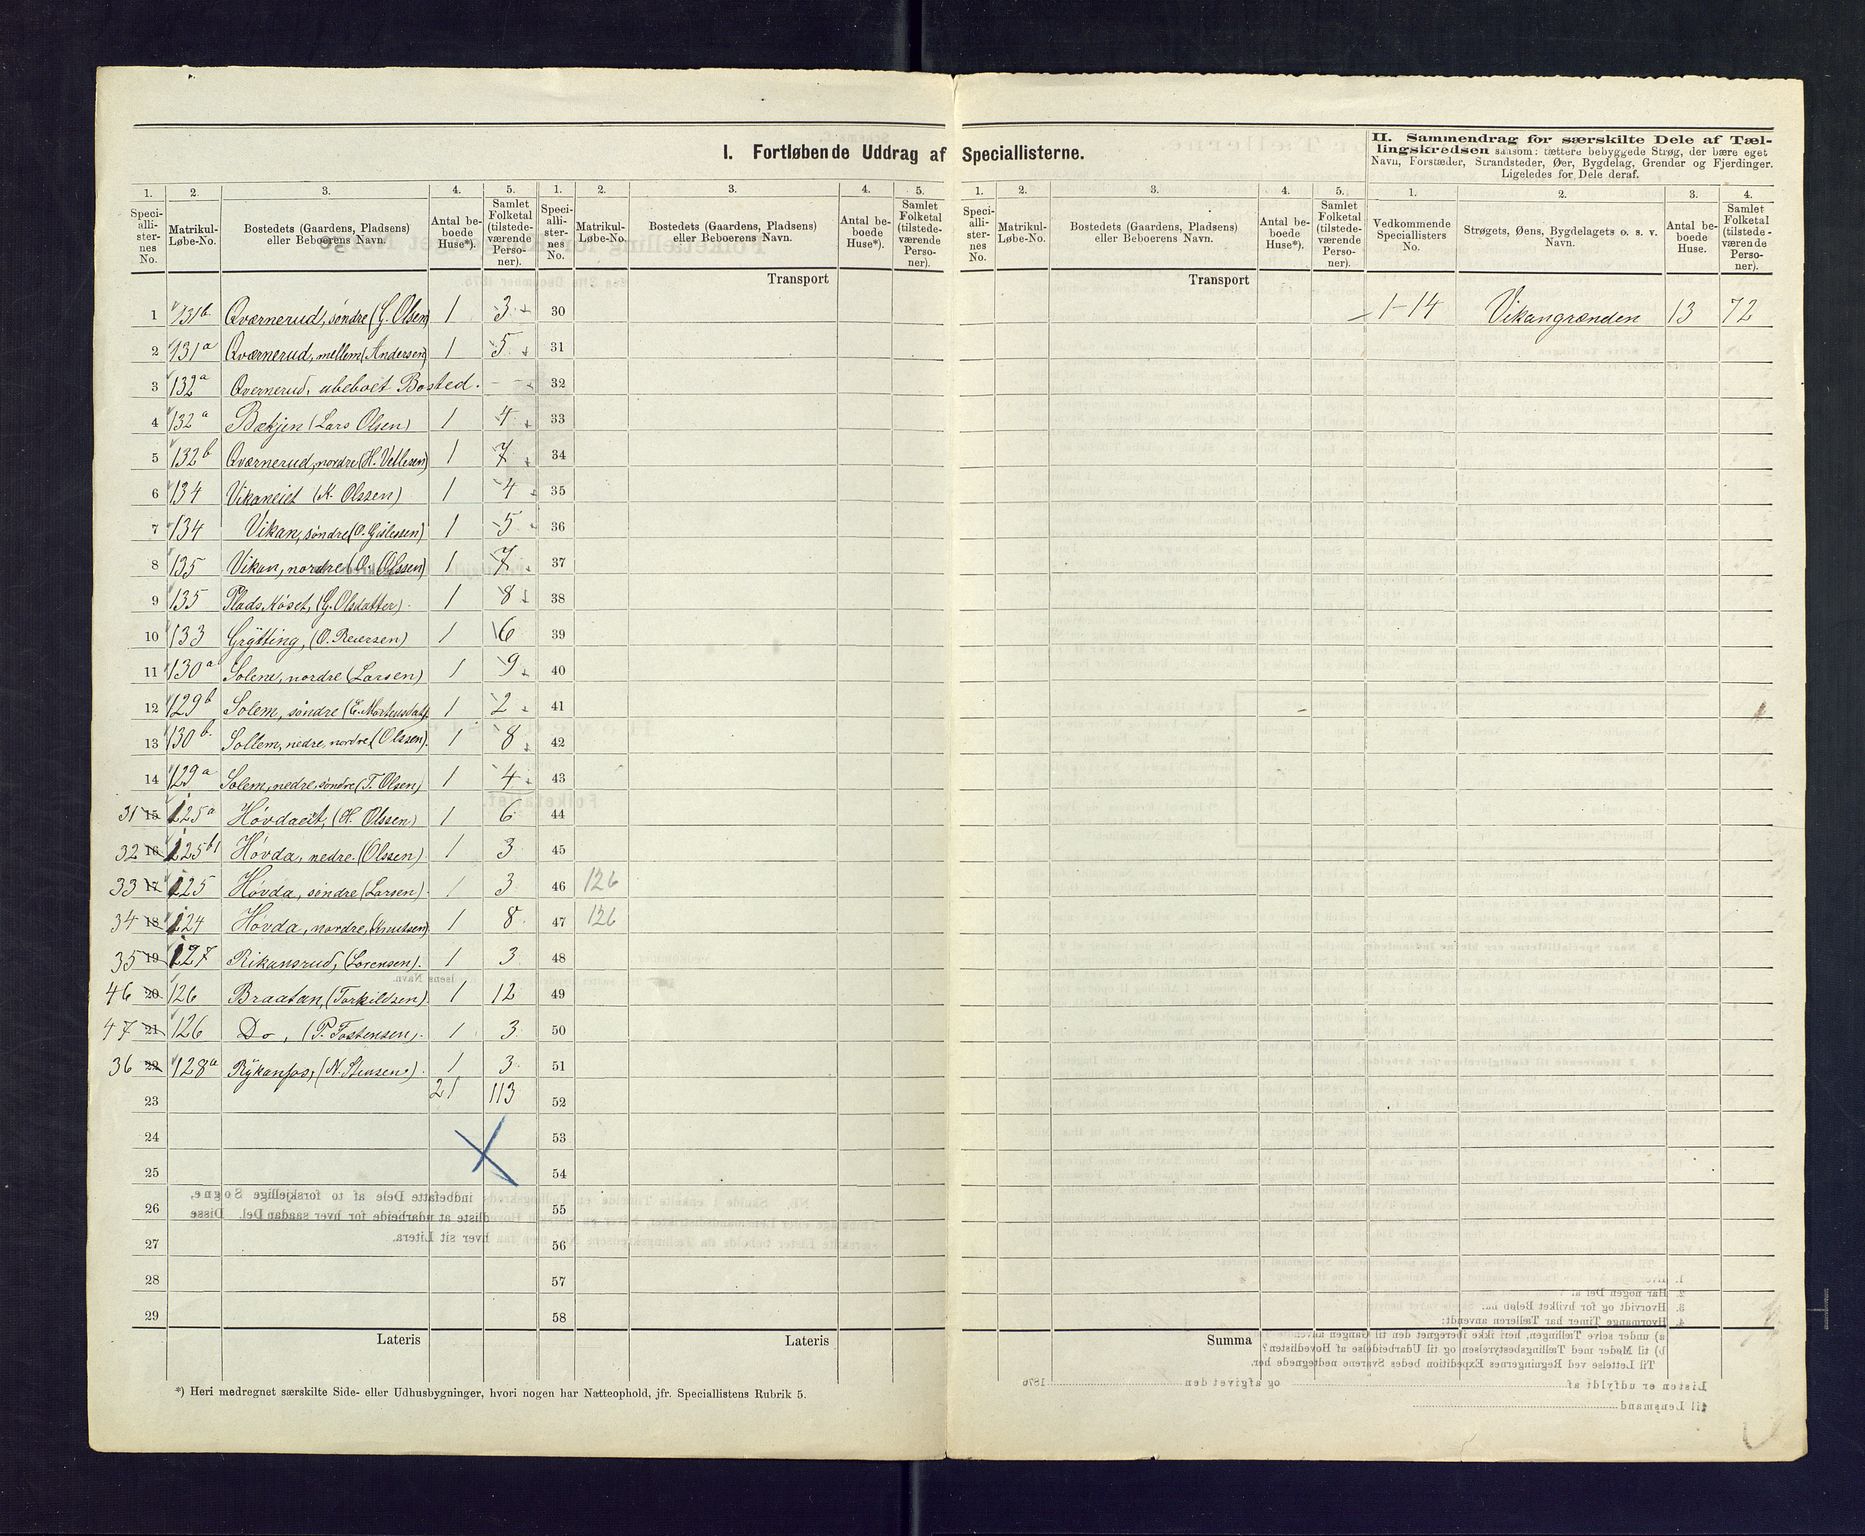 I. Fortløbende Uddrag af Speciallisterne.
II. Sammendrag for særskilte Dele af Tæl-
lingskredsen saasom: tættere bebyggede Strøg, der bære eget
Navn, Forstæder, Strandsteder, Øer, Bygdelag, Grender og Fjerdinger.
Ligeledes for Dele deraf.
1. 2. 3. 4. 5. 1. 2. 3. 4. 5. 1. 2. 3. 4. 5. 1. 2. 3. 4.
Speci-
alli-
ster-
nes
No.
Matrikul-
Løbe-No.
Bostedets (Gaardens, Pladsens)
eller Beboerens Navn.
Antal be-
boede
Huse*).
Samlet
Folketal
(tilstede-
værende
Perso-
ner).
Speci-
alli-
ster-
nes
No.
Matrikul-
Løbe-No.
Bostedets (Gaardens, Pladsens)
eller Beboerens Navn.
Antal be-
boede
Huse*).
Samlet
Folketal
(tilstede-
værende
Perso-
ner).
Speci-
alli-
ster-
nes
No.
Matrikul-
Løbe-No.
Bostedets (Gaardens, Pladsens)
eller Beboerens Navn.
Antal be-
boede
Huse*).
Samlet
Folketal
(tilstede-
værende
Perso-
ner).
Vedkommende
Speciallisters
No.
Strøgets, Øens, Bygdelagets o. s. v.
Navn.
Antal be-
boede
Huse.
Samlet
Folketal
(tilstede-
værende
Perso-
ner).
Transport Transport
1 131b Qværnerud, søndre (G. Olsen) 1 3 30 1-14 Vikangrænden 13 72
2 131a Qværnerud, mellem (Andersen) 1 5 31
3 132a Qvernerud, ubeboet Bosted. - - 32
4 132a Bækjen (Lars Olsen) 1 4 33
5 132b Qværnerud, nordre (H. Vetlesen) 1 7 34
6 134 Vikaneiet (K. Olssen) 1 4 35
7 134 Vikan, søndre (O. Gislessen) 1 5 36
8 135 Vikan, nordre (O. Olssen) 1 7 37
9 135 Plads Köset, (G. Olsdatter). 1 8 38
10 133 Grÿtting, (O. Reiersen) 1 6 39
11 130a Solem, nordre (Larsen) 1 9 40
12 129b Solem, søndre (E. Mortensdat). 1 2 41
13 130b. Sollem, nedre, nordre (Olssen). 1 8 42
14 129a Solem, nedre, søndre (T. Olsen) 1 4 43
31 15 125a Hövdaeit, (H. Olssen) 1 6 44
32 16 125b1 Hövda, nedre. (Olssen) 1 3 45
33 17 125 Hövda, søndre (Larsen). 1 3 46 126
34 18 124 Hövda, nordre, (Knutsen) 1 8 47 126
35 19 127 Rikansrud, (Sorensen). 1 3 48
46 20 126 Braatan, (Torkildsen) 1 12 49
47 21 126 Do, (P. Tostensen). 1 3 50
36 22 128a Rÿkanfos, (N. Stensen). 1 3 51
23 21 113 52
24 53
25 54
26 55
27 56
28 57
29 58
Lateris Lateris Summa
*) Heri medregnet særskilte Side- eller Udhusbygninger, hvori nogen har Natteophold, jfr. Speciallistens Rubrik 5.